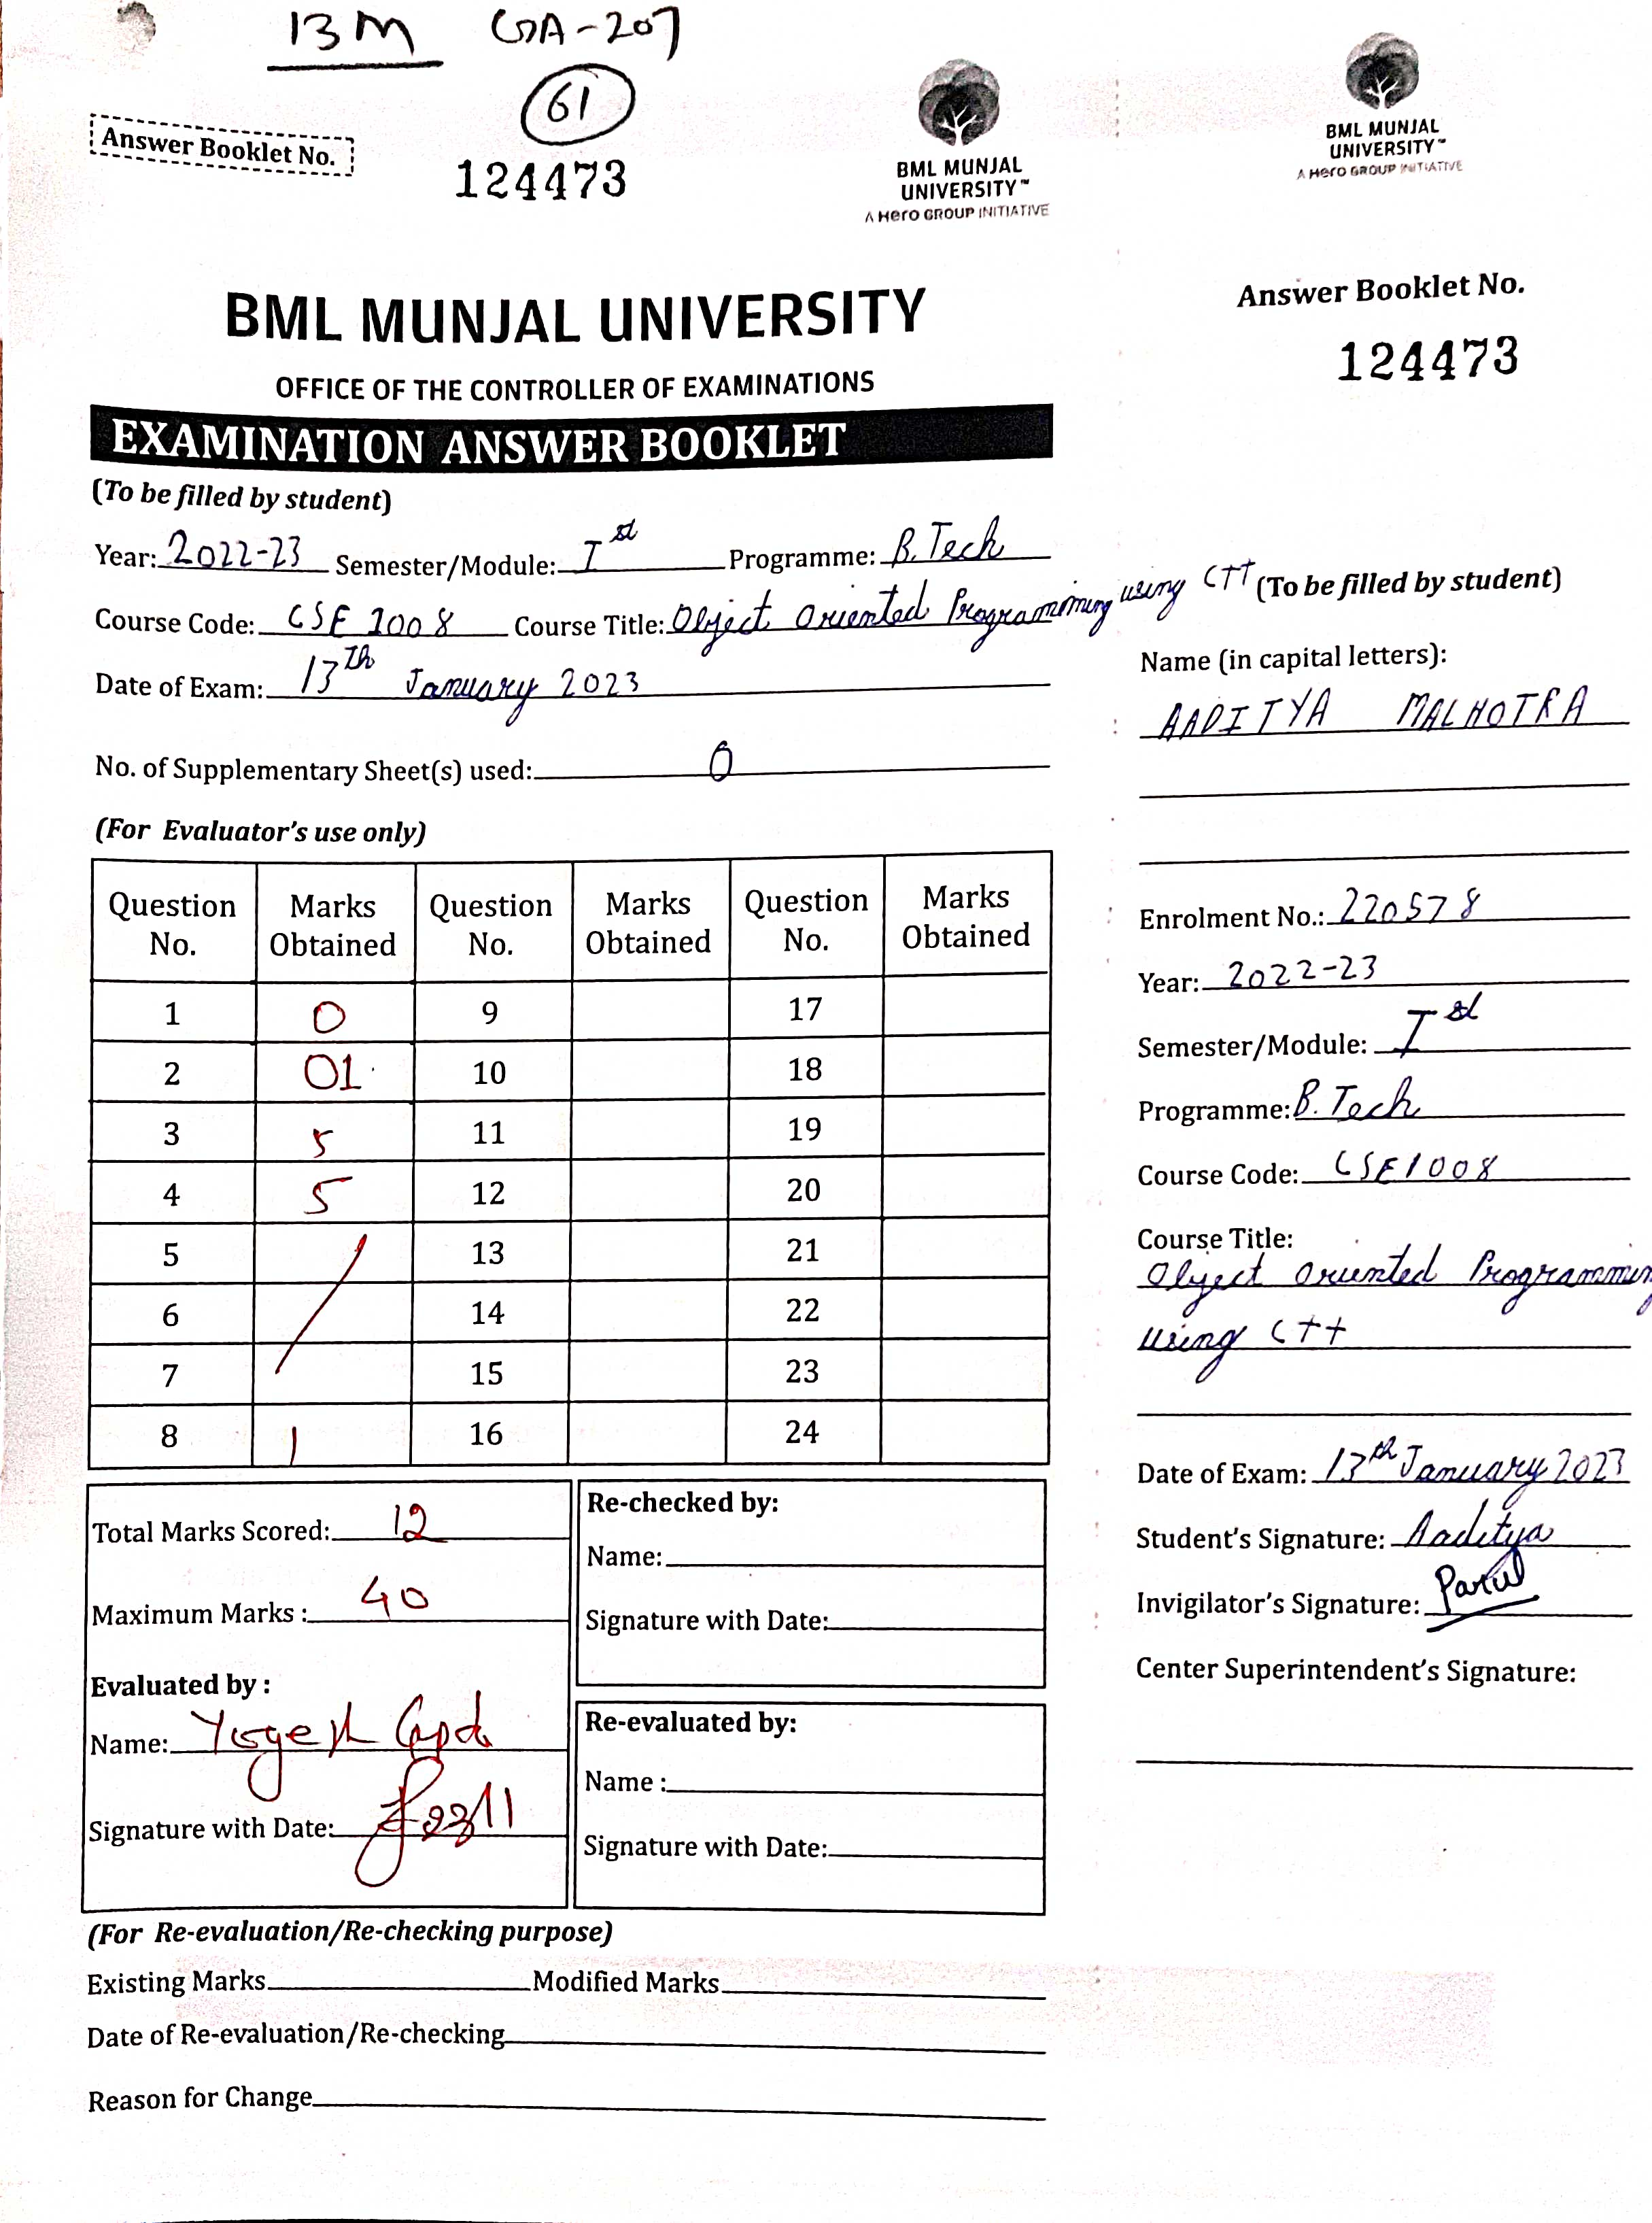 13M GA-207
61
Answer Booklet No.
124473
BML MUNJAL
UNIVERSITY™
A Hero GROUP INITIATIVE
BML MUNJAL
UNIVERSITY™
A Hero GROUP INITIATIVE
BML MUNJAL UNIVERSITY
OFFICE OF THE CONTROLLER OF EXAMINATIONS
EXAMINATION ANSWER BOOKLET
(To be filled by student)
Year: 2022-23 Semester/Module: Ist Programme: B.Tech
Course Code: CSE 1008 Course Title: Object Oriented Programming using C++
Date of Exam: 13th January 2023
No. of Supplementary Sheet(s) used: 0
(For Evaluator's use only)
Question No. Marks Obtained Question No. Marks Obtained Question No. Marks Obtained
1 0 9 17
2 01 10 18
3 5 11 19
4 5 12 20
5 13 21
6 14 22
7 15 23
8 1 16 24
Total Marks Scored: 12
Maximum Marks : 40
Evaluated by :
Name: Yogesh
Signature with Date:
Re-checked by:
Name:
Signature with Date:
Re-evaluated by:
Name :
Signature with Date:
(For Re-evaluation/Re-checking purpose)
Existing Marks Modified Marks
Date of Re-evaluation/Re-checking
Reason for Change
Answer Booklet No.
124473
(To be filled by student)
Name (in capital letters):
AADITYA MALHOTRA
Enrolment No.: 220578
Year: 2022-23
Semester/Module: Ist
Programme: B. Tech
Course Code: CSE1008
Course Title:
Object Oriented Programming
using C++
Date of Exam: 13th January 2023
Student's Signature: Aaditya
Invigilator's Signature: Parul
Center Superintendent's Signature: